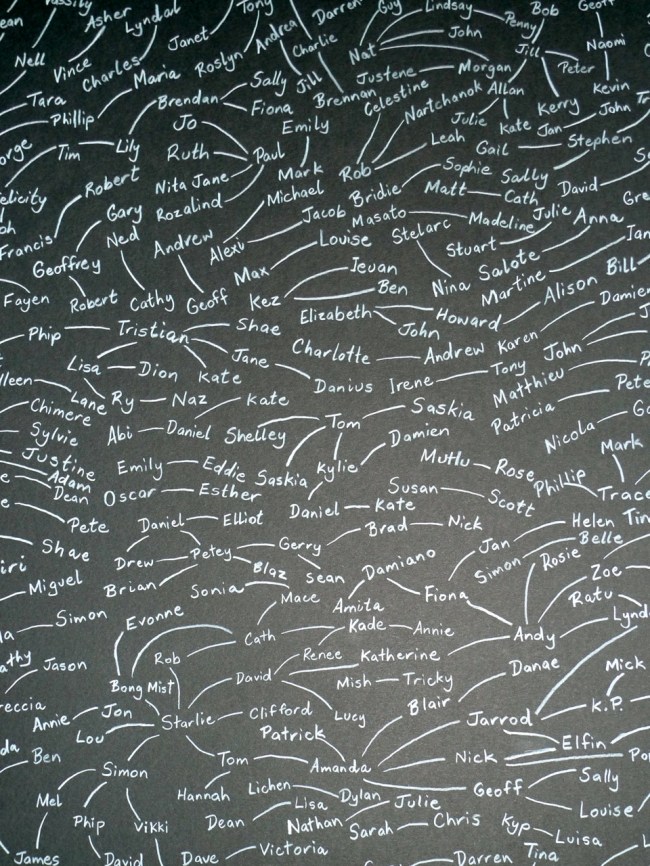 Tony Darren Guy Lindsay Bob Geoff
Asher Lyndal Andrea Penny
Nell Vince Janet Charlie Nat John Jill Naomi
Charles Maria Roslyn Justene Morgan Peter
Tara Brendan Sally Jill Brennan Celestine Nartchanok Allan Kevin
Phillip Fiona Julie Kerry John
Jo Emily Kate Jan
Tim Lily Ruth Paul Leah Gail Stephen
Robert Nita Jane Mark Rob Sophie Sally
Gary Rozalind Michael Bridie Matt Cath David
Francis Ned Andrew Alexi Jacob Masato Madeline Julie Anna
Geoffrey Louise Stelarc Stuart Salote
Max Jevan Nina Martine Bill
Fayen Robert Cathy Geoff Kez Ben Alison
Phip Tristian Shae Elizabeth John Howard
Lisa Dion Kate Jane Charlotte Andrew Karen John
Lane Ry Naz Kate Danius Irene Tony Matthieu
Chimere Patricia
Sylvie Abi Daniel Shelley Tom Saskia Nicola
Justine Emily Eddie Saskia Kylie Damien Mark
Adam Mutlu Rose Phillip
Dean Oscar Esther Daniel Kate Susan Scott
Pete Daniel Elliot Brad Nick Helen
Shave Drew Petey Gerry Jan Belle
Miguel Brian Blaz Sean Damiano Simon Rosie Zoe
Sonia Mace Amita Fiona Ratu
Simon Evonne Cath Kade Annie Andy
Jason Rob Renee Katherine Danae Mick
Bong Mist David Mish Tricky
Annie Jon Starlie Clifford Lucy Blair Jarrod K.P.
Lou Patrick Elfin
Ben Simon Tom Amanda Nick
Mel Hannah Lichen Dylan Geoff Sally
Phip Vikki Dean Lisa Nathan Julie Louise
Sarah Chris Kyp Luisa
James David Dave Victoria Darren Tina